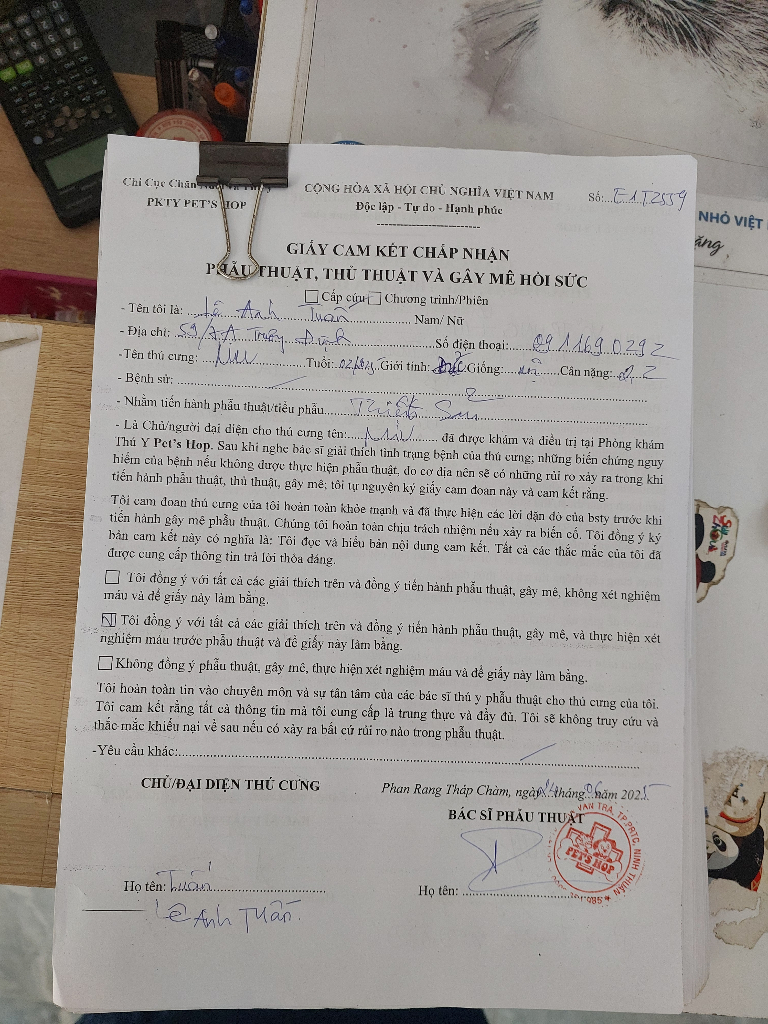 Chi Cục Chăn Nuôi Và Thú Y
PKTY PET'S HOP
CỘNG HÒA XÃ HỘI CHỦ NGHĨA VIỆT NAM
Độc lập - Tự do - Hạnh phúc
Số: E1T2559
NHỎ VIỆT
GIẤY CAM KẾT CHẤP NHẬN
PHẪU THUẬT, THỦ THUẬT VÀ GÂY MÊ HỒI SỨC
Cấp cứu Chương trình/Phiên
- Tên tôi là: Lê Anh Tuấn Nam/ Nữ
- Địa chỉ: 59/7A Trương Định Số điện thoại: 0911690292
-Tên thú cưng: Tuổi: Giới tính: Đực Giống: Cân nặng:
- Bệnh sử:
- Nhằm tiến hành phẫu thuật/tiểu phẫu Triệt Sản
- Là Chủ/người đại diện cho thú cưng tên: đã được khám và điều trị tại Phòng khám
Thú Y Pet's Hop. Sau khi nghe bác sĩ giải thích tình trạng bệnh của thú cưng; những biến chứng nguy
hiểm của bệnh nếu không được thực hiện phẫu thuật, do cơ địa nên sẽ có những rủi ro xảy ra trong khi
tiến hành phẫu thuật, thủ thuật, gây mê; tôi tự nguyện ký giấy cam đoan này và cam kết rằng.
Tôi cam đoan thú cưng của tôi hoàn toàn khỏe mạnh và đã thực hiện các lời dặn dò của bsty trước khi
tiến hành gây mê phẫu thuật. Chúng tôi hoàn toàn chịu trách nhiệm nếu xảy ra biến cố. Tôi đồng ý ký
bản cam kết này có nghĩa là: Tôi đọc và hiểu bản nội dung cam kết. Tất cả các thắc mắc của tôi đã
được cung cấp thông tin trả lời thỏa đáng.
Tôi đồng ý với tất cả các giải thích trên và đồng ý tiến hành phẫu thuật, gây mê, không xét nghiệm
máu và để giấy này làm bằng.
Tôi đồng ý với tất cả các giải thích trên và đồng ý tiến hành phẫu thuật, gây mê, và thực hiện xét
nghiệm máu trước phẫu thuật và để giấy này làm bằng.
Không đồng ý phẫu thuật, gây mê, thực hiện xét nghiệm máu và để giấy này làm bằng.
Tôi hoàn toàn tin vào chuyên môn và sự tận tâm của các bác sĩ thú y phẫu thuật cho thú cưng của tôi.
Tôi cam kết rằng tất cả thông tin mà tôi cung cấp là trung thực và đầy đủ. Tôi sẽ không truy cứu và
thắc mắc khiếu nại về sau nếu có xảy ra bất cứ rủi ro nào trong phẫu thuật.
-Yêu cầu khác:
CHỦ/ĐẠI DIỆN THÚ CƯNG
Phan Rang Tháp Chàm, ngày tháng 06 năm 2025
BÁC SĨ PHẪU THUẬT
PET'S HOP
Họ tên: Tuấn
Họ tên:
Lê Anh Tuấn